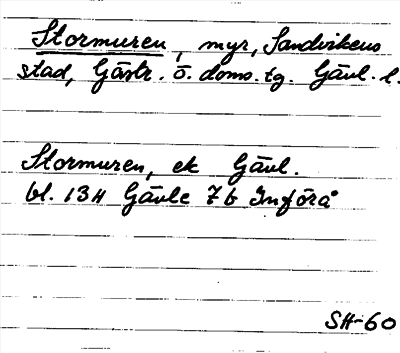 Stormuren, myr, Sandvikens
stad, Gästr. ö. doms. tg. Gävl. l.
Stormuren, ek Gävl.
bl. 13H Gävle 7b Införd
SH-60